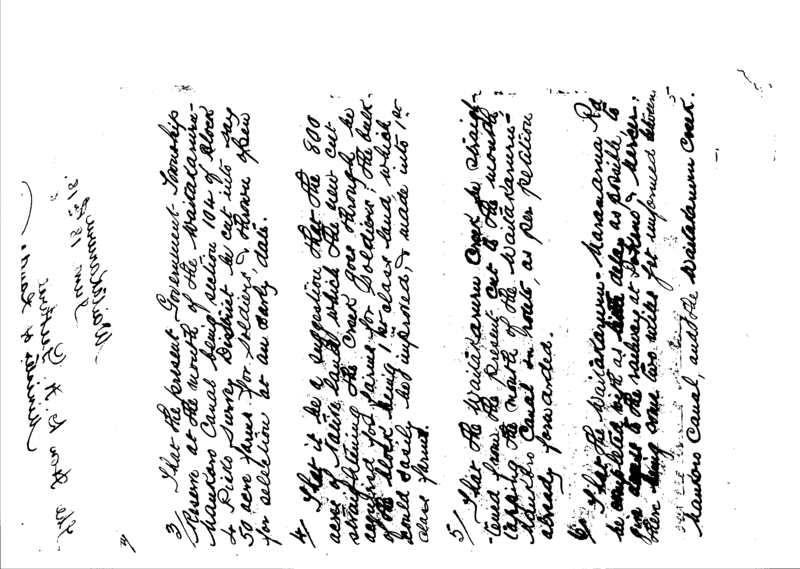 Waitakaruru
June 18th 18.
The Hon D. H. Guthrie
Minister of Lands.
3/ That the present Government Township
Reserve at the mouth of the Waitakaruru-
Maukoro Canal being section 10 of Block
4 Piako Survey District be cut into say
50 acre farms for soldiers, & thrown open
for selection at an early date.
4/ That it be a suggestion that the 800
acres of native land which the new cut
straightening the Creek goes through be
acquired for farms for Soldiers; the bulk
of the block being 1st class land, which
could easily be improved, & made into 1st
class farms.
5/ That the Waitakaruru Creek be straight-
-ened from the present cut to the mouth
tapping the mouth of the Waitakaruru-
Maukoro Canal en route, as per petition
already forwarded.
6/ That the Waitakaruru-Maramarua Rd
be completed with as little delay as possible to
give access to the railway at Pokeno & Mercer:
there being some two miles yet unformed between
Maukoro Canal, and the Waitakaruru Creek.